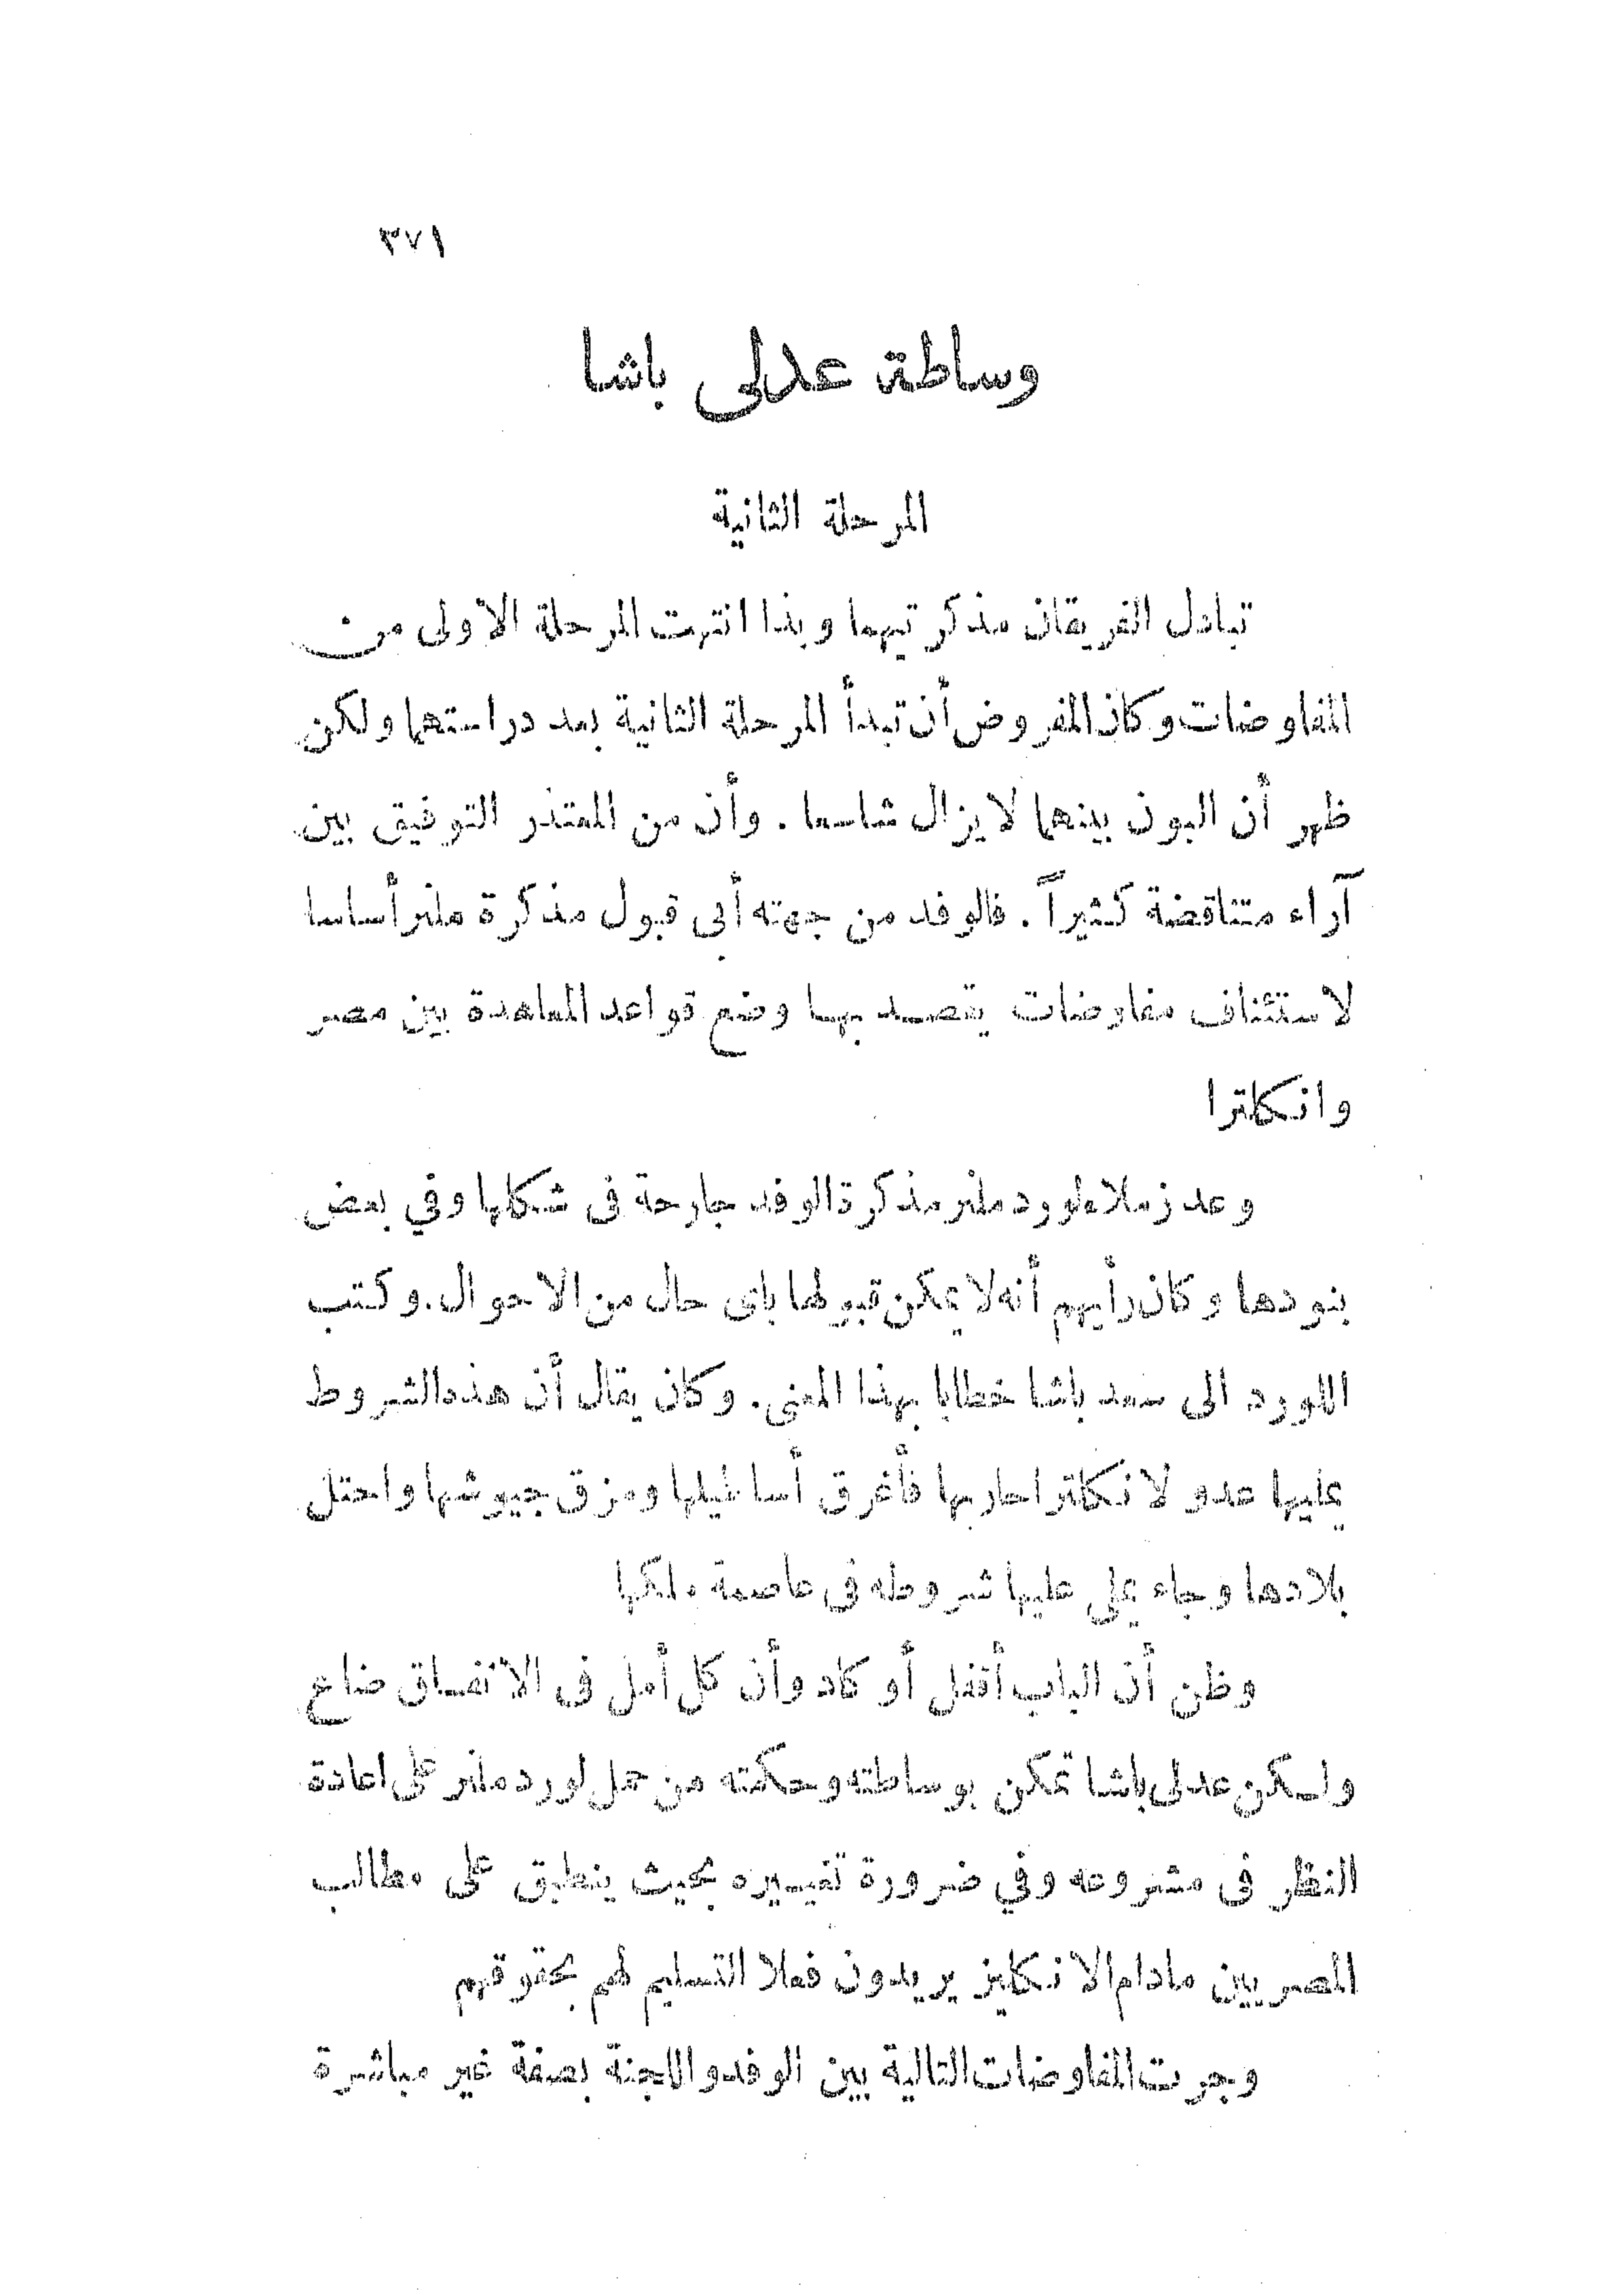 ٣٧١
وساطة عدلى باشا
المرحلة الثانية
تبادل الفريقان مذكرتيهما وبذا انتهت المرحلة الأولى من
المفاوضات وكان المفروض أن تبدأ المرحلة الثانية بعد دراستهما ولكن
ظهر أن البون بينهما لا يزال شاسعا . وأن من المتعذر التوفيق بين
آراء متناقضة كثيراً . فالوفد من جهته أبى قبول مذكرة ملنر أساسا
لاستئناف مفاوضات يقصد بها وضع قواعد المعاهدة بين مصر
وانكلترا
وعد زملاء لورد ملنر مذكرة الوفد جارحة فى شكلها وفي بعض
بنودها وكان رأيهم أنه لا يمكن قبولها باى حال من الاحوال . وكتب
اللورد الى سعد باشا خطابا بهذا المعنى . وكان يقال أن هذه الشروط
يمليها عدو لانكلترا حاربها فأغرق أساطيلها ومزق جيوشها واحتل
بلادها وجاء يملى عليها شروطه فى عاصمة ملكها
وظن أن الباب أقفل أو كاد وأن كل أمل فى الاتفاق ضاع
ولكن عدلى باشا تمكن بوساطته وحكمته من حمل لورد ملنر على اعادة
النظر فى مشروعه وفي ضرورة تغييره بحيث ينطبق على مطالب
المصريين مادام الانكليز يريدون فعلا التسليم لهم بحقوقهم
وجرت المفاوضات التالية بين الوفد واللجنة بصفة غير مباشرة